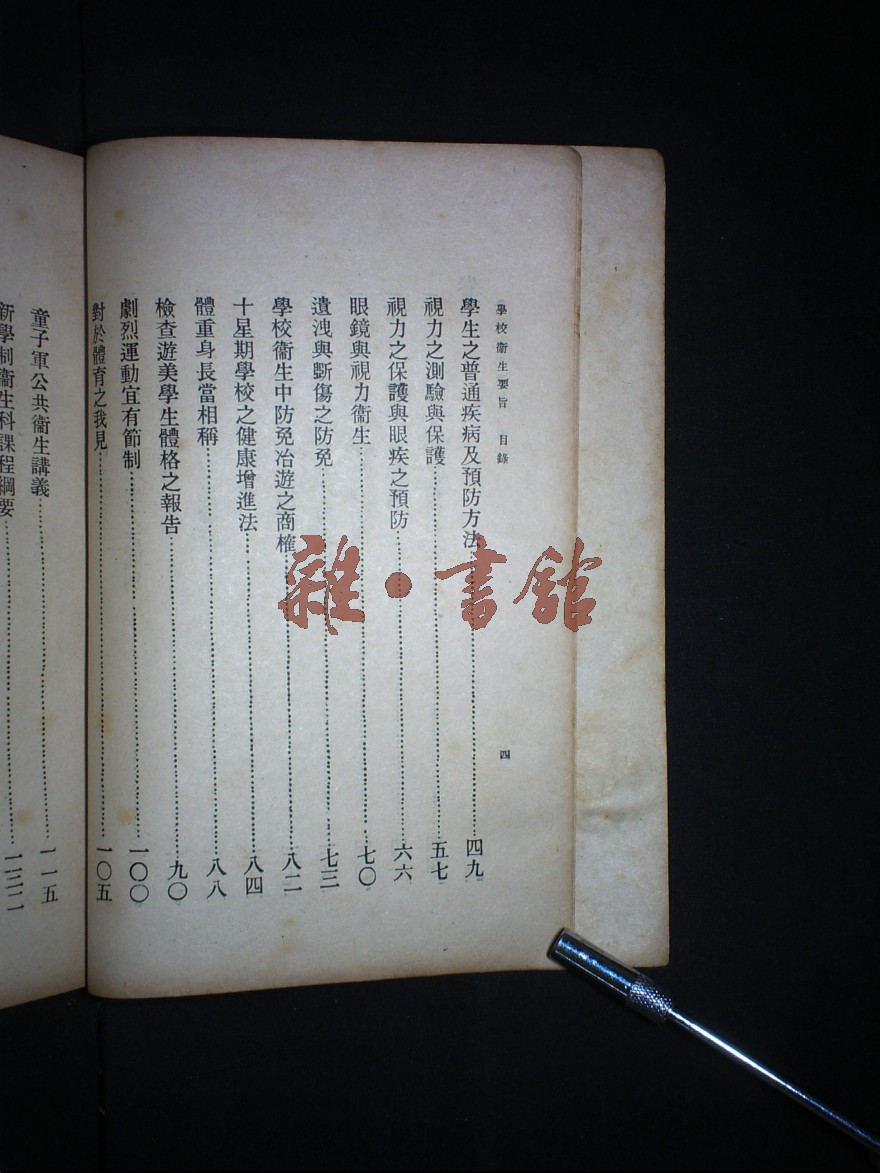 學校衞生要旨 目錄
四
學生之普通疾病及預防方法 四九
視力之測驗與保護 五七
視力之保護與眼疾之預防 六六
眼鏡與視力衞生 七〇
遺洩與斲傷之防免 七三
學校衞生中防免冶遊之商榷 八二
十星期學校之健康增進法 八四
體重身長當相稱 八八
檢查遊美學生體格之報告 九〇
劇烈運動宜有節制 一〇〇
對於體育之我見 一〇五
童子軍公共衞生講義 一一五
新學制衞生科課程綱要
雜·書館